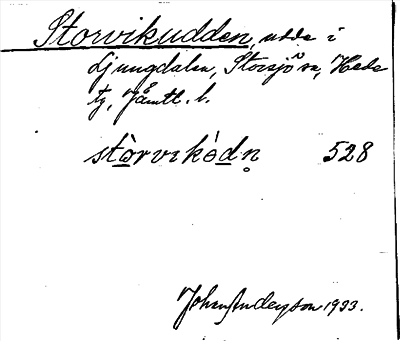 Storvikudden, udde i
Ljungdalen, Storsjö sn, Hede
tg, Jämtl. l.
stòrvikòdn̥ 528
Johan Anderson 1933.